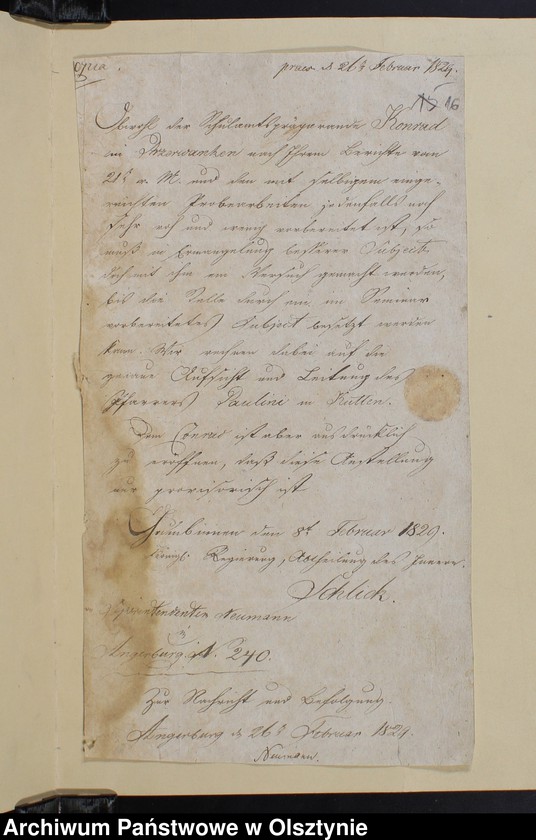 Copia.
praes. d. 26t Februar 1829.
15 16
Obwohl der Schulamtspräparande Konrad
in Przerwanken nach Ihrem Berichte vom
21t v. M. und den mit selbigem einge-
reichten Probearbeiten jedenfalls noch
sehr roh und wenig vorbereitet ist, so
muß in Ermangelung besserer Subjecte
doch mit ihm ein Versuch gemacht werden,
bis die Stelle durch ein im Seminar
vorbereitetes Subject besetzt werden
kann. Wir rechnen dabei auf die
genaue Aufsicht und Leitung des
Pfarrers Paulini in Kutten.
Dem Conrad ist aber ausdrücklich
zu eröffnen, daß diese Anstellung
nur provisorisch ist
Gumbinnen den 8t Februar 1829.
Königl. Regierung, Abtheilung des Innern.
Schlick.
Superintendenten Neumann
in
Angerburg. N. 240.
Zur Nachricht und Befolgung.
Angerburg d. 26t Februar 1829.
Neumann.
Archiwum Państwowe w Olsztynie